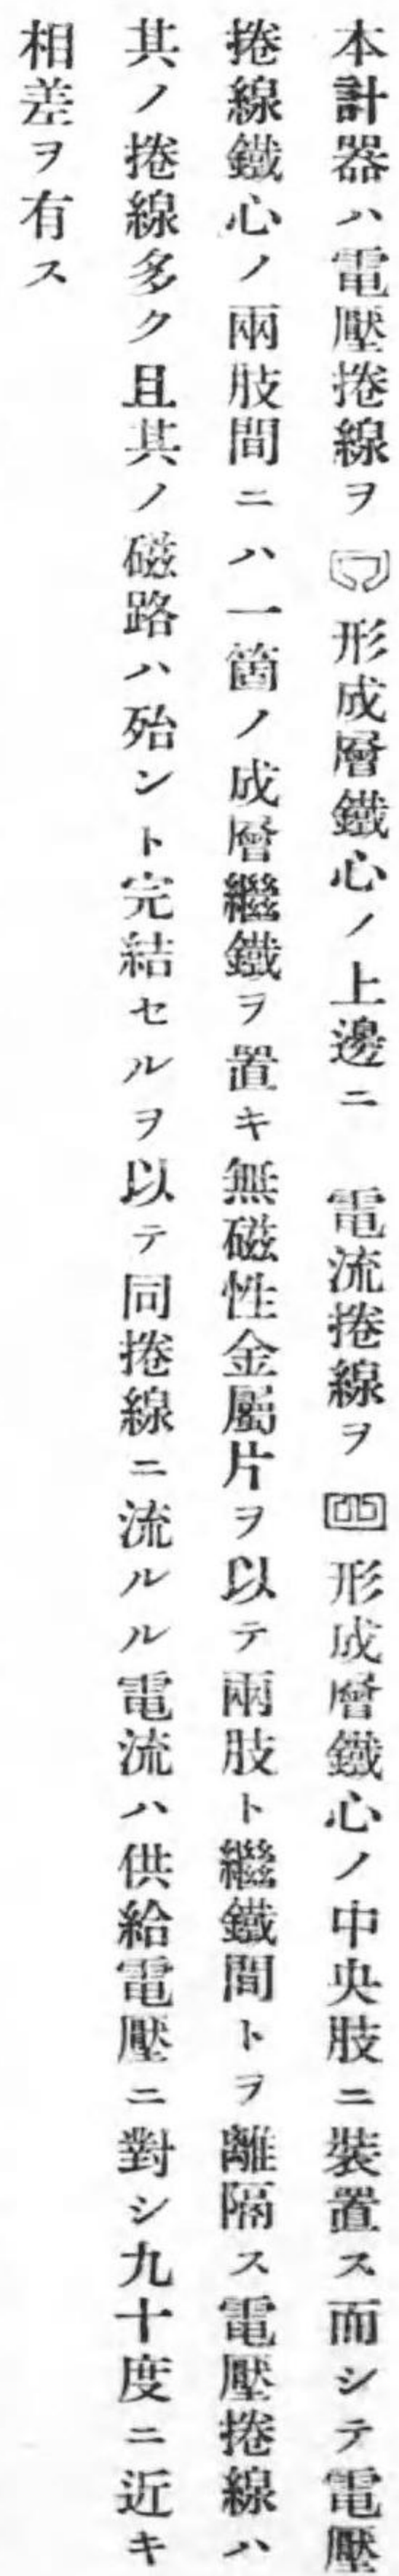 本計器ハ電壓捲線ヲ形成層鐵心ノ上邊ニ 電流捲線ヲ形成層鐵心ノ中央肢ニ裝置ス而シテ電壓
捲線鐵心ノ兩肢間ニハ一箇ノ成層繼鐵ヲ置キ無磁性金屬片ヲ以テ兩肢ト繼鐵間トヲ離隔ス電壓捲線ハ
其ノ捲線多ク且其ノ磁路ハ殆ント完結セルヲ以テ同捲線ニ流ルル電流ハ供給電壓ニ對シ九十度ニ近キ
相差ヲ有ス